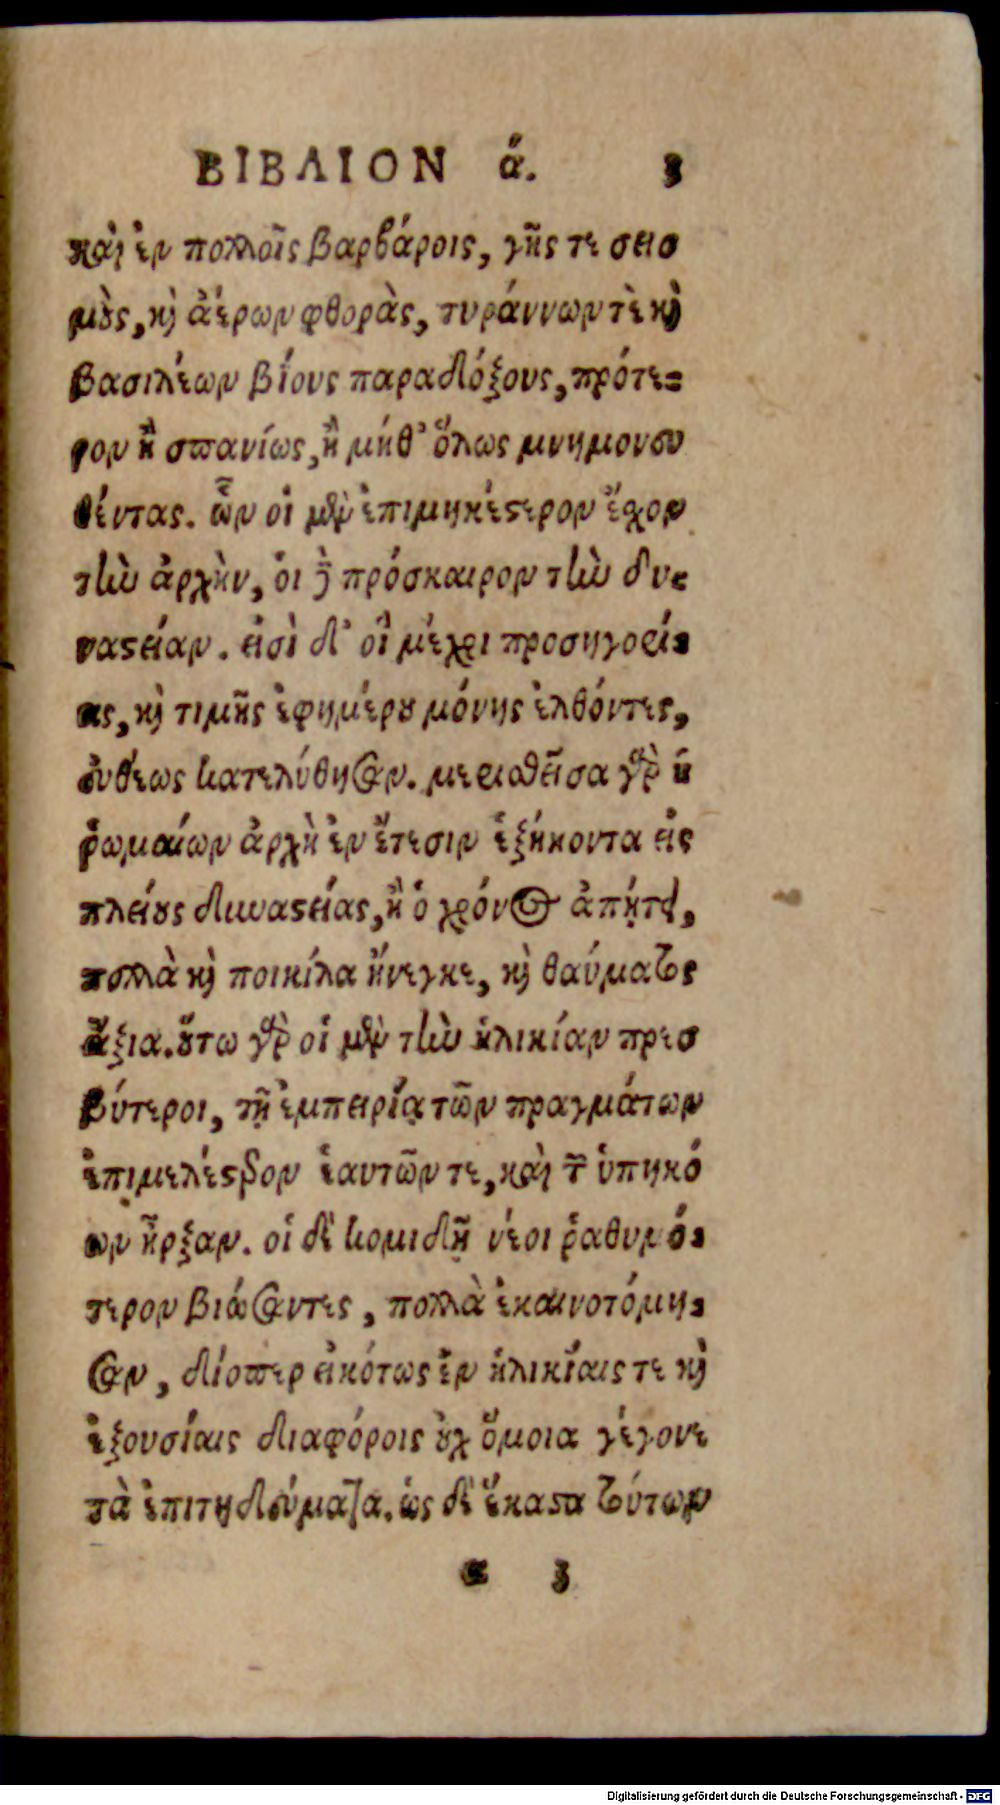 ΒΙΒΛΙΟΝ ά. 3
καὶ ἐν πολλοῖς βαρβάροις, γῆς τε σεισ
μοὺς, καὶ ἀέρων φθορὰς, τυράννων τὲ καὶ
βασιλέων βίους παραδόξους, πρότε=
ρον ἢ σπανίως, ἢ μήθ' ὅλως μνημονευ
θέντας. ὧν οἱ μὲν ἐπιμηκέστερον ἔχον
τὴν ἀρχὴν, οἱ δὲ πρόσκαιρον τὴν δυ=
ναστείαν. εἰσὶ δ' οἳ μέχρι προσηγορί=
ας, καὶ τιμῆς ἐφημέρου μόνης ἐλθόντες,
εὐθέως κατελύθησαν. μερισθεῖσα γὰρ ἡ
ῥωμαίων ἀρχὴ ἐν ἔτεσιν ἑξήκοντα εἰς
πλείους δυναστείας, ἢ ὁ χρόνος ἀπῄτει,
πολλὰ καὶ ποικίλα ἤνεγκε, καὶ θαύματος
ἄξια. οὕτω γὰρ οἱ μὲν τὴν ἡλικίαν πρεσ
βύτεροι, τῇ ἐμπειρίᾳ τῶν πραγμάτων
ἐπιμελέστερον ἑαυτῶν τε, καὶ τῶν ὑπηκό
ων ἦρξαν. οἱ δὲ κομιδῇ νέοι ῥαθυμό=
τερον βιώσαντες, πολλὰ ἐκαινοτόμη=
σαν, διόπερ εἰκότως ἐν ἡλικίαις τε καὶ
ἐξουσίαις διαφόροις οὐχ ὅμοια γέγονε
τὰ ἐπιτηδεύματα. ὡς δὲ ἕκαστα τούτων
α 3
Digitalisierung gefördert durch die Deutsche Forschungsgemeinschaft - DFG